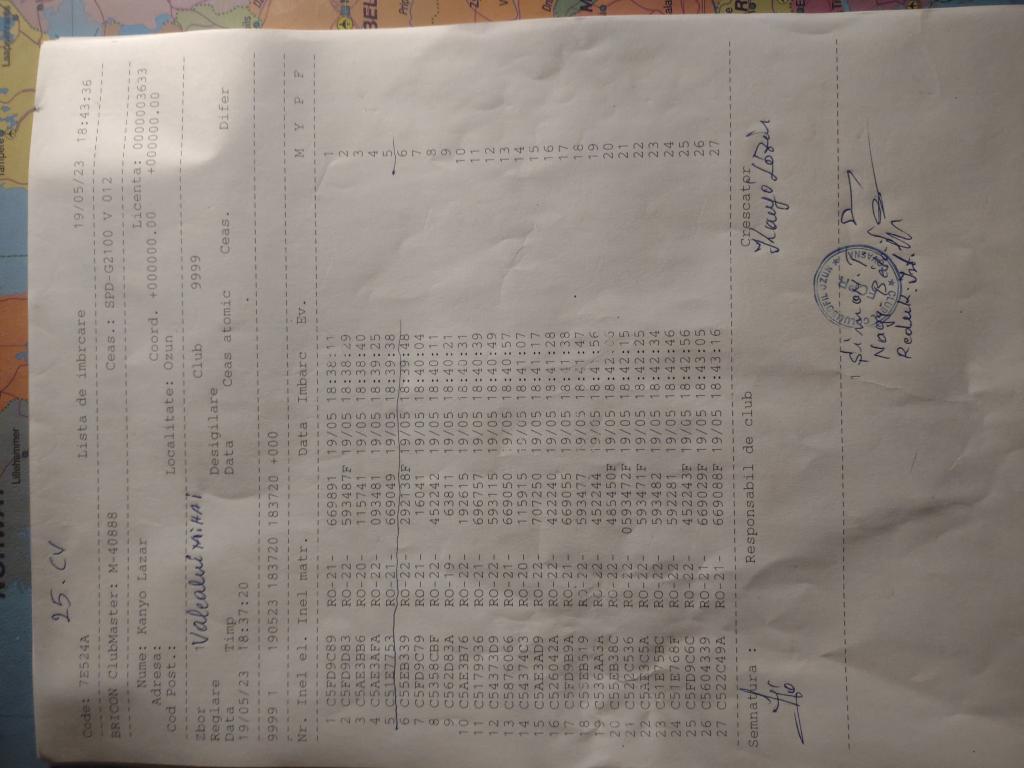 25. CV
Code: 7E524A Lista de imbrcare 19/05/23 18:43:36
BRICON ClubMaster: M-40888 Ceas.: SPD-G2100 V 012
Nume: Kanyo Lazar Licenta: 0000003633
Adresa: Coord. +000000.00 +000000.00
Cod Post.: Localitate: Ozun
Zbor Valcalui Mihai Club 9999
Reglare Desigilare
Data Timp Data Ceas atomic Ceas. Difer
19/05/23 18:37:20
9999 1 190523 183720 183720 +000 1
Nr. Inel el. Inel matr. Data Imbarc Ev. M Y P F
1 C5FD9C89 RO-21- 669891 19/05 18:38:11 1
2 C5FD9D83 RO-22- 593487F 19/05 18:38:29 2
3 C5AE3BB6 RO-20- 115741 19/05 18:38:40 3
4 C5AE3AFA RO-22- 093481 19/05 18:39:25 4
5 C51E7753 RO-21- 669049 19/05 18:39:38 5
6 C55EB339 RO-22- 297138F 19/05 18:39:48 6
7 C5FD9C79 RO-21- 16041 19/05 18:40:04 7
8 C5359CBF RO-22- 452242 19/05 18:40:11 8
9 C562D82A RO-19- 63811 19/05 18:40:21 9
10 C5AE3B76 RO-19- 192615 19/05 18:40:31 10
11 C5179936 RO-21- 669757 19/05 18:40:39 11
12 C54373D9 RO-22- 593115 19/05 18:40:49 12
13 C5876066 RO-21- 669050 19/05 18:40:57 13
14 C54374C3 RO-20- 115915 19/05 18:41:07 14
15 C5AE3AD9 RO-22- 707250 19/05 18:41:17 15
16 C526042A RO-22- 422240 19/05 18:41:28 16
17 C5FD9B9A RO-21- 669055 19/05 18:41:38 17
18 C55EB519 RO-22- 593477 19/05 18:41:47 18
19 RO-22- 452244 19/05 18:41:56 19
20 C55EB38C RO-22- 485450F 19/05 18:42: 20
21 C522C536 RO-22- 0593472F 19/05 18:42:15 21
22 C5AE3C5A RO-22- 593471F 19/05 18:42:25 22
23 C51E75BC RO-22- 593482 19/05 18:42:34 23
24 C51E768F RO-22- 592281 19/05 18:42:46 24
25 C5FD9C6C RO-22- 452243F 19/05 18:42:56 25
26 C5604339 RO-21- 669029F 19/05 18:43:05 26
27 C522C49A RO-21- 669088F 19/05 18:43:16 27
Semnatura : Responsabil de club Crescator
Kanyo Lázár